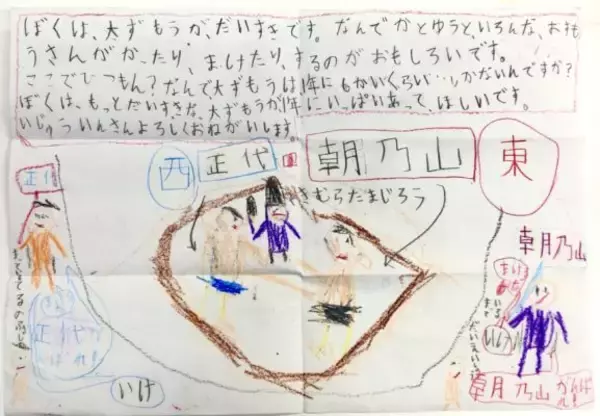 ぼくは、大ずもうが、だいすきです。なんでかとゆうと、いろんな、おすもうさんがかったり、まけたり、するのがおもしろいです。
ここでひつもん?なんで大ずもうは1年に6かいくらい…しかないんですか?
ぼくは、もっとだいすきな、大ずもうが1年にいっぱいあって、ほしいです。
いじゅういんさんよろしくおねがいします。
西
正代
朝乃山
東
きむらたまじろう
正代
正代
がんばれ!
いけ
朝乃山
いけ
朝乃山
がんばれ!